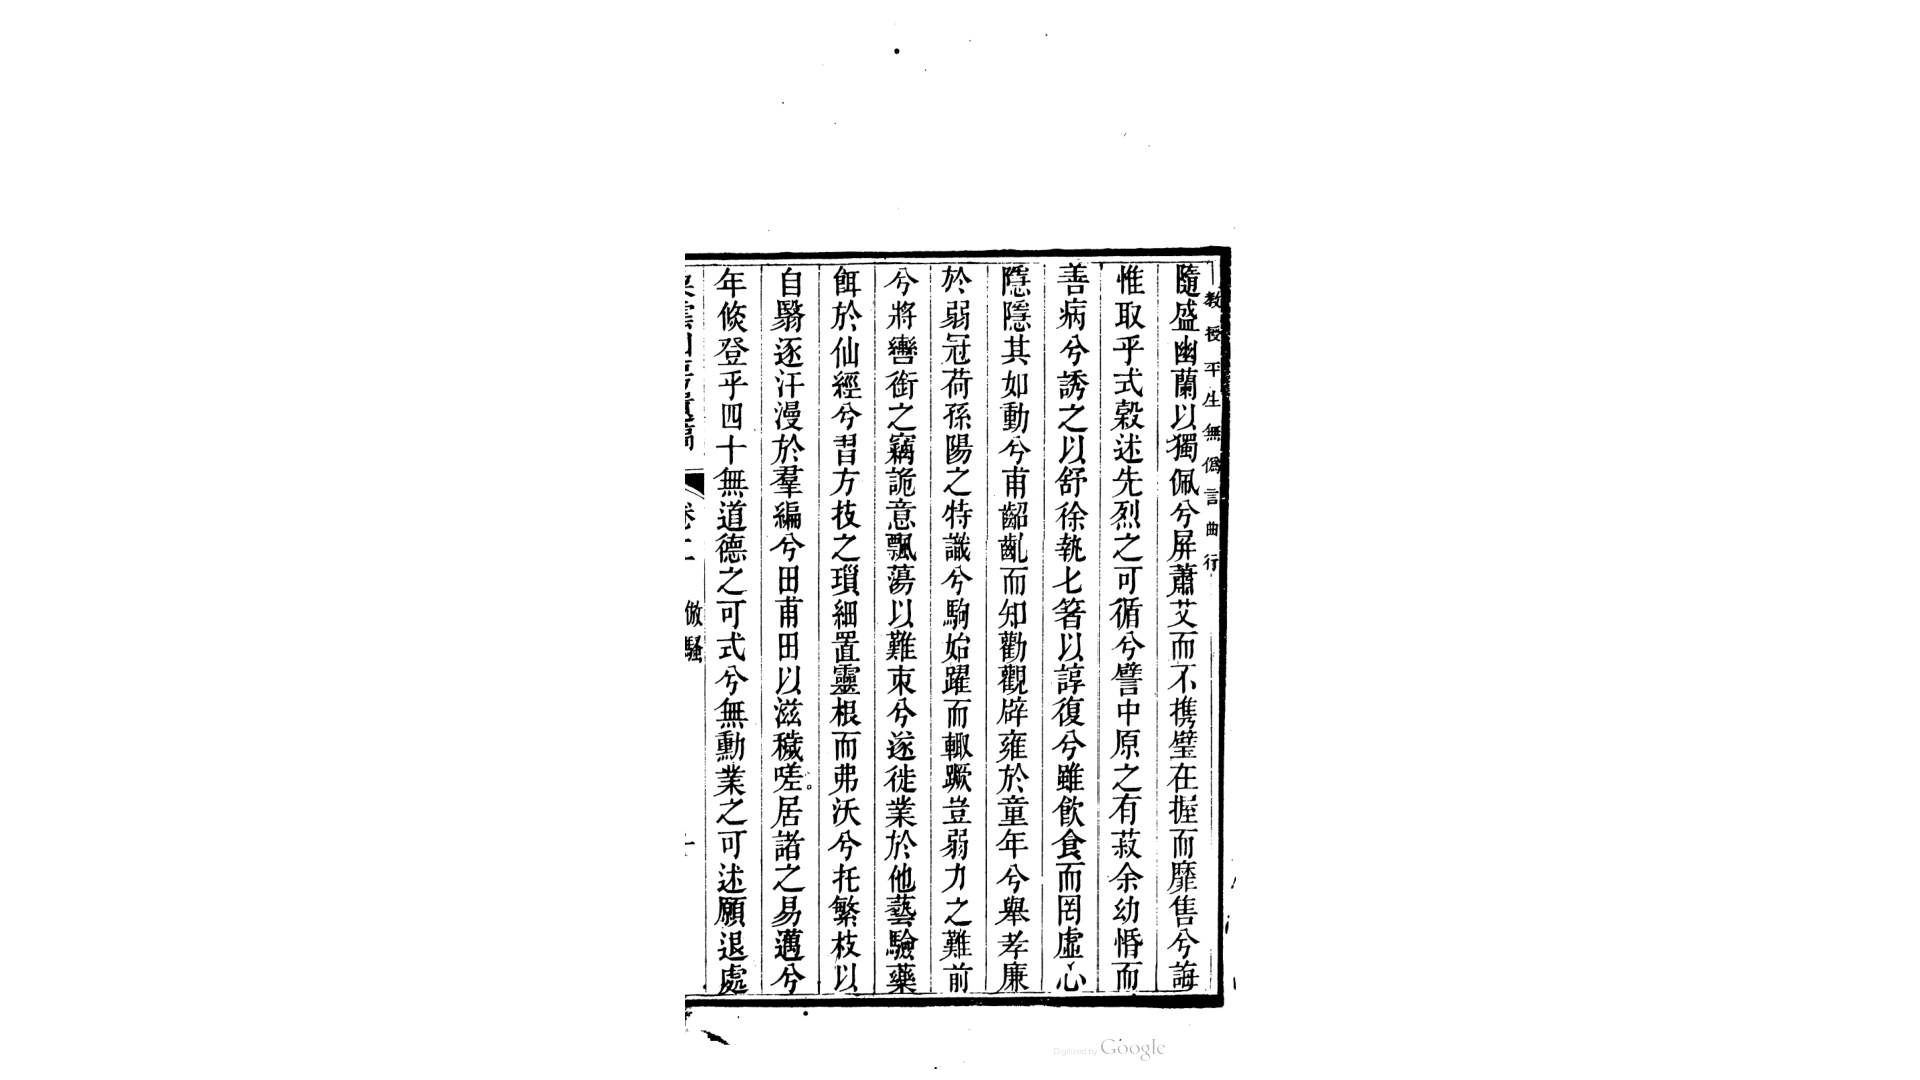 教授平生無僞言曲行
隨盛幽蘭以獨佩兮屏蕭艾而不攜璧在握而靡售兮誨
惟取乎式穀述先烈之可循兮譬中原之有菽余幼惛而
善病兮誘之以舒徐執匕箸以諄復兮雖飲食而罔虛心
隱隱其如動兮甫齠齓而知勸觀辟雍於童年兮舉孝廉
於弱冠荷孫陽之特識兮駒始躍而輙蹶豈弱力之難前
兮將轡銜之竊詭意飄蕩以難束兮遂徙業於他藝驗藥
餌於仙經兮㫺方技之瑣細置靈根而弗沃兮托繁枝以
自翳逐汗漫於羣編兮田甫田以滋穢嗟。居諸之易邁兮
年倐登乎四十無道德之可式兮無勳業之可述願退處
卷二 倣騷
Digitized by Google